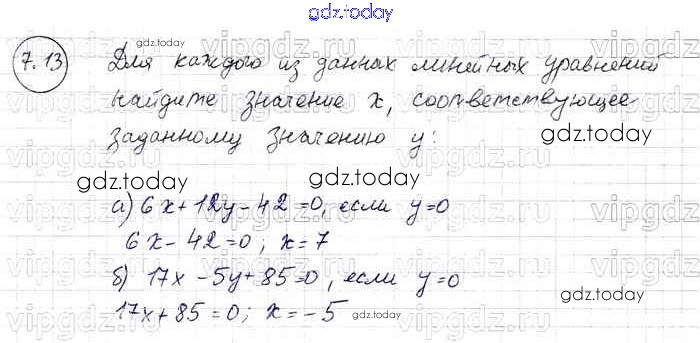 gdz.today
7.13
Для каждого из данных линейных уравнений
найдите значение x, соответствующее
заданному значению y:
а) 6x+12y-42=0, если y=0
6x-42=0; x=7
б) 17x-5y+85=0, если y=0
17x+85=0; x=-5
gdz.today
gdz.today
gdz.today
gdz.today
gdz.today
gdz.today
gdz.today
vipgdz.ru
vipgdz.ru
vipgdz.ru